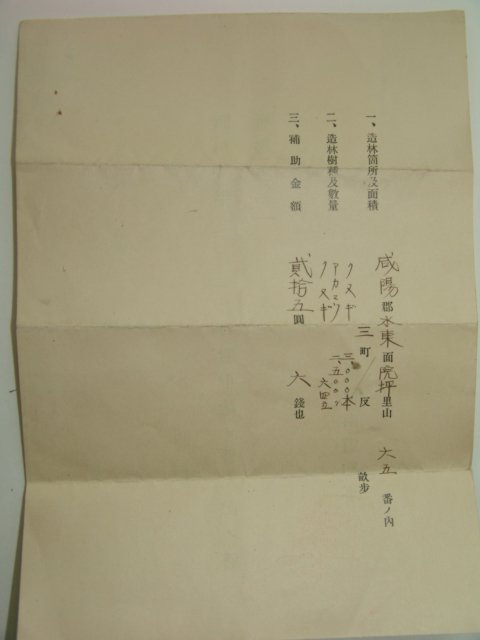 一、造林箇所及面積
咸陽郡水東面院坪里山 六五 番ノ內
三町 反 畝步
二、造林樹種及數量
クヌギ 三、〇〇〇本
アカマツ 二、五〇〇〃
クヌギ 六四五
三、補助金額
貳拾五圓 六 錢也